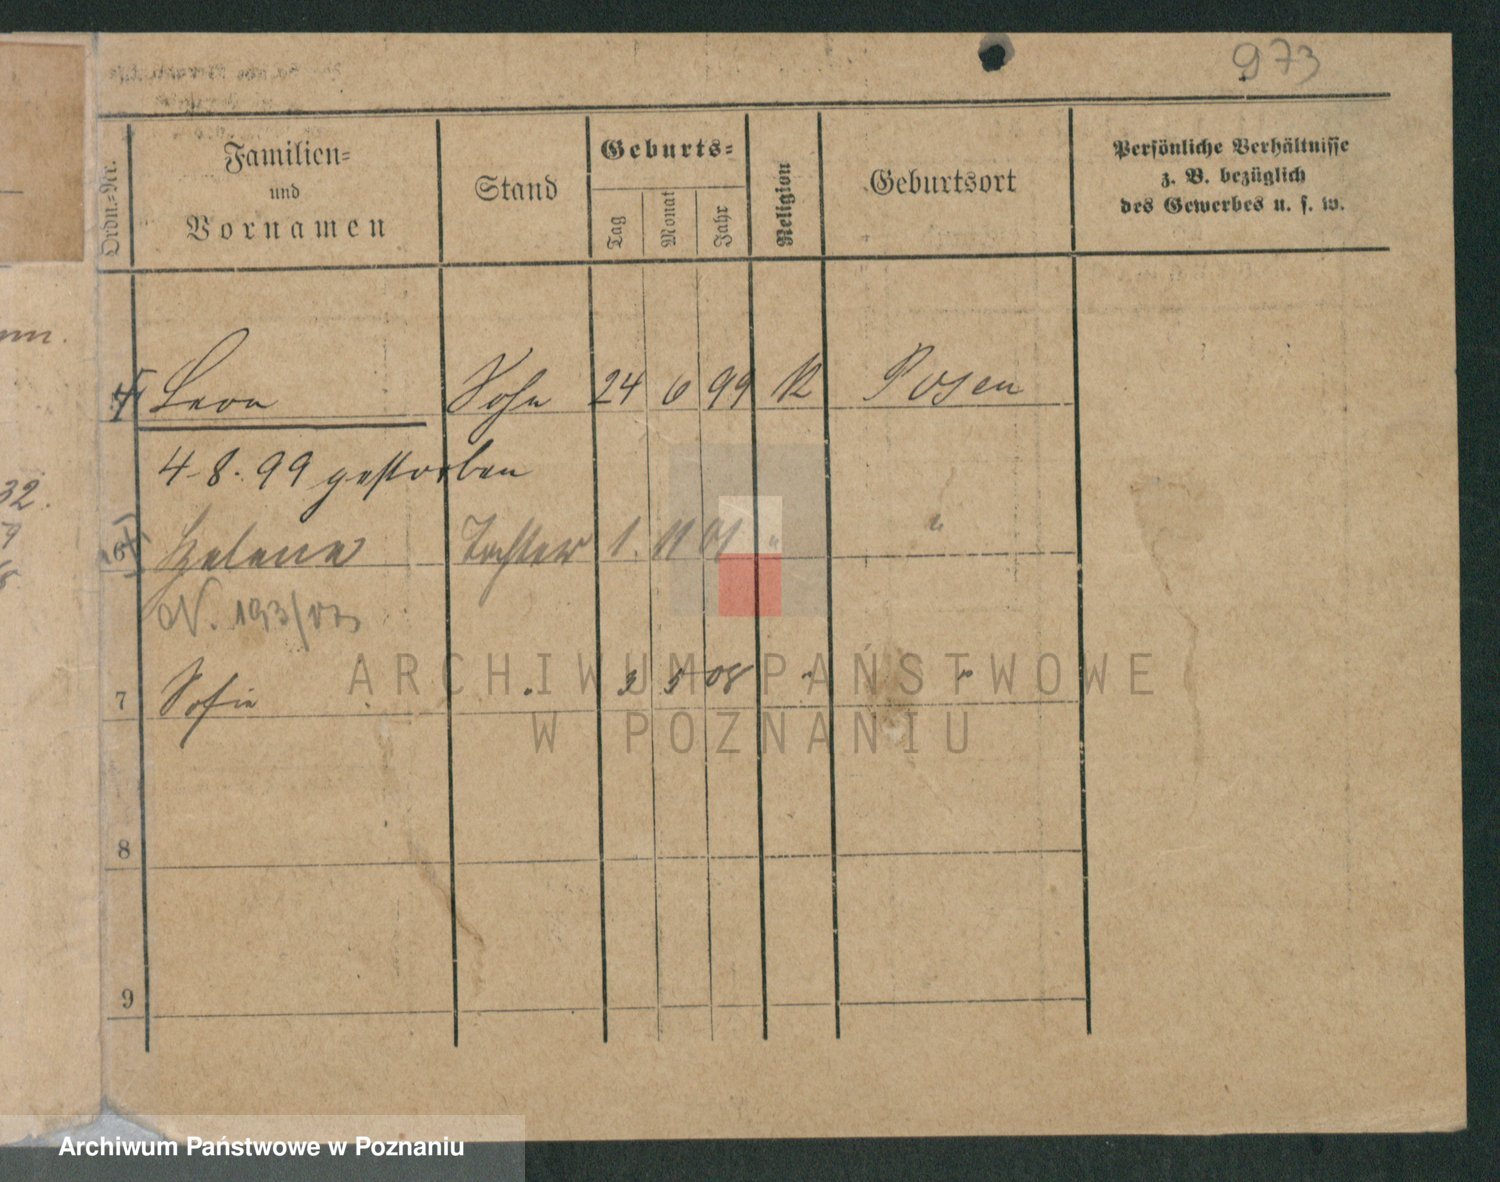 973
Ordn.-Nr.
Familien-
und
Vornamen
Stand
Geburts-
Tag
Monat
Jahr
Religion
Geburtsort
Persönliche Verhältnisse
z. B. bezüglich
des Gewerbes u. s. w.
Leon Sohn 24 6 99 K Posen
4-8.99 gestorben
32.
6 Helene Tochter 1. 11 01 " "
N. 193/07
7 Sofie " 3 5 08 " "
ARCHIWUM PAŃSTWOWE
W POZNANIU
8
9
Archiwum Państwowe w Poznaniu